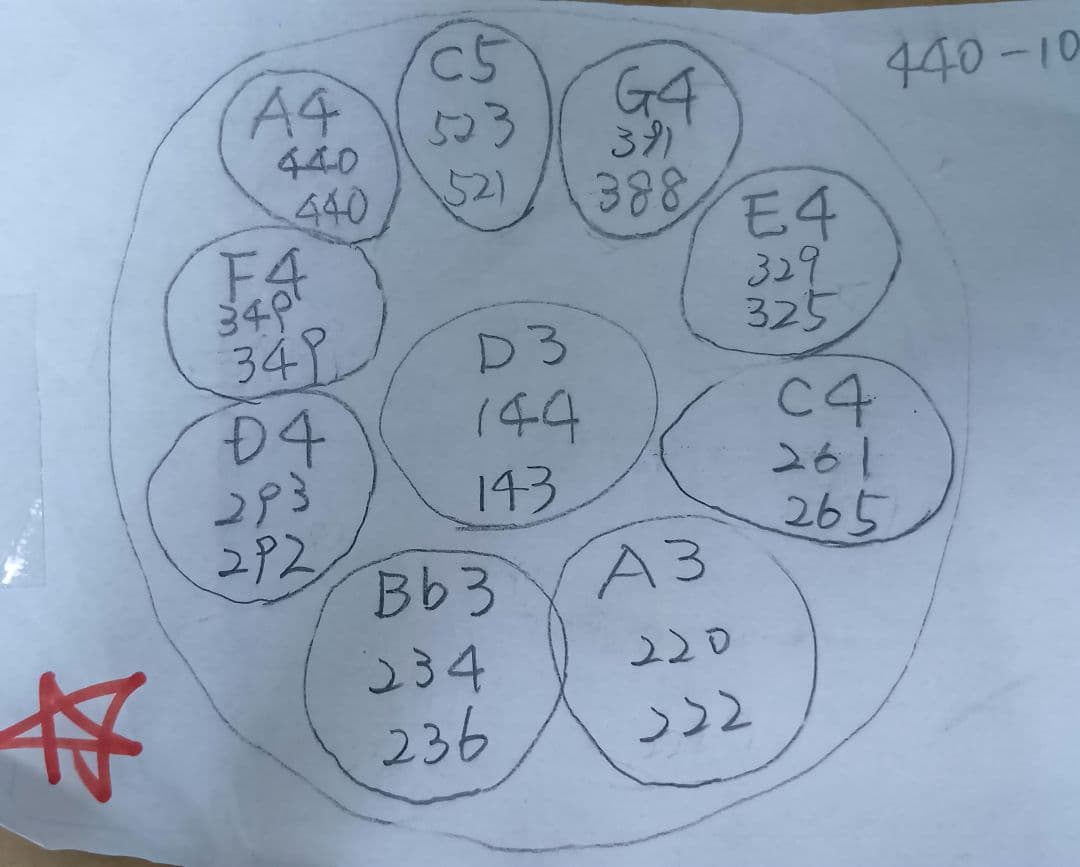 440-10
C5
523
521
A4
440
440
G4
391
388
E4
329
325
F4
349
349
D3
144
143
C4
261
265
D4
293
292
Bb3
234
236
A3
220
222